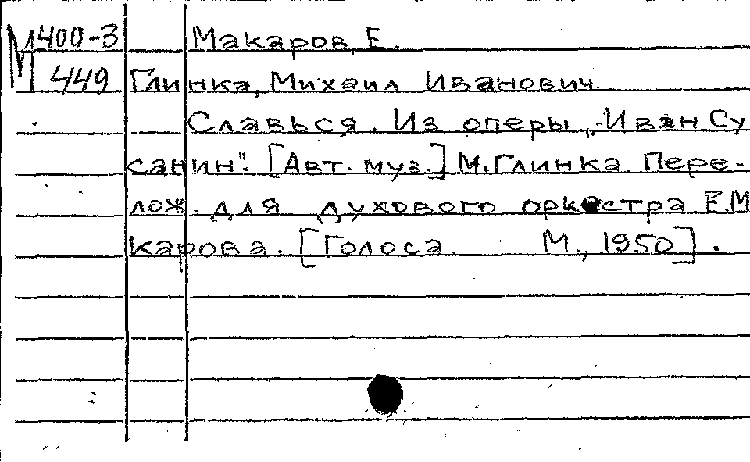 М 400-3 Макаров, Е.
449 Глинка, Михаил Иванович
Славься. Из оперы „Иван Су
санин". [Авт. муз.] М. Глинка. Пере-
лож. для духового оркестра Е.М
карова. [Голоса М., 1950].